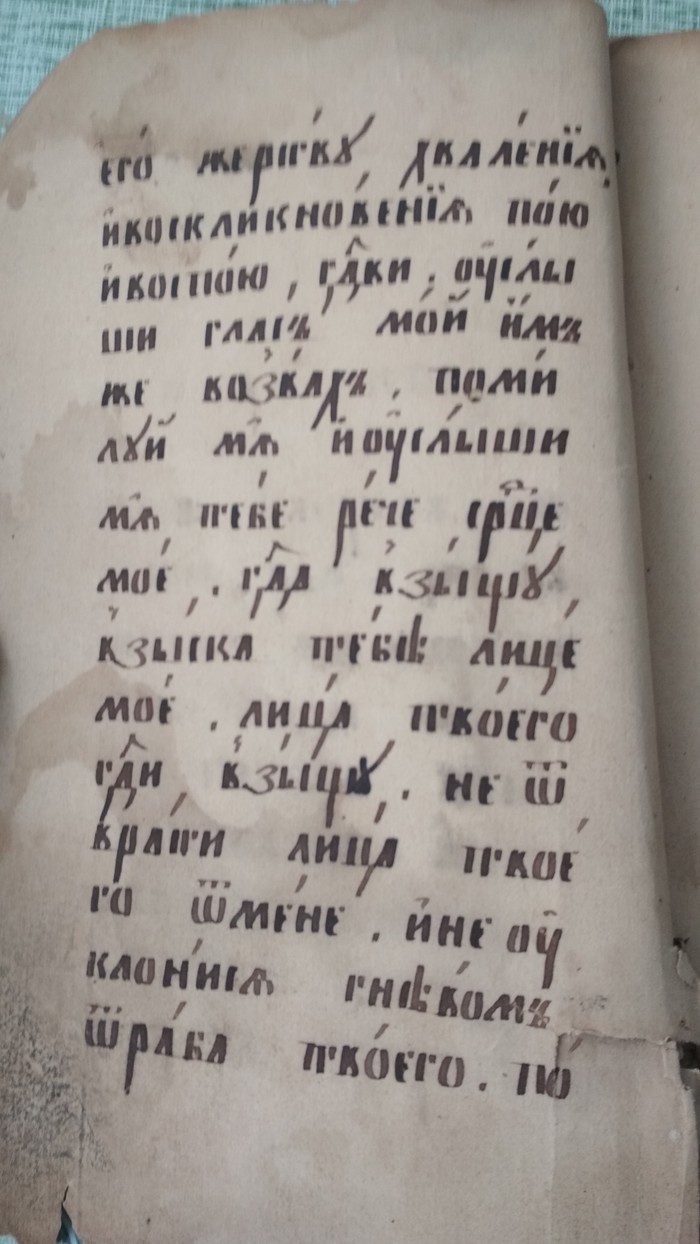 его́ же́ртвꙋ хвале́нїѧ,
и҆воскли́кнове́нїѧ пою̀
и҆воспою̀, гдⷭ҇ви. ᲂу҆слы́
ши гла́съ мо́й и҆́мъ
же возва́хъ. поми́
лꙋй мѧ̀ и҆ᲂу҆слы́ши
мѧ̀, тебѐ ре́че ср҃це
моѐ. гдⷭ҇а взыщꙋ̀,
взыска тебѣ̀ лицѐ
моѐ. лица̀ твоего̀
гдⷭ҇и, взыщꙋ̀. не ѿ
вратѝ лица̀ твое
го ѿме́не. и҆не ᲂу҆
клони́сѧ гнѣ́вомъ
ѿра́ба твоего̀. по